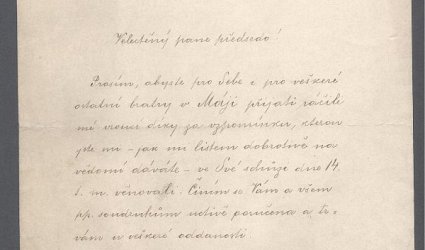 Velectěný pane předsedo!
Prosím, abyste pro Sebe i pro veškeré
ostatní bratry v Máji přijati ráčil
mé vroucí díky za vzpomínku, kterou
jste mi - jak mi listem dobrotivě na
vědomí dáváte - ve Své schůzi dne 14.
t. m. věnovali. Činím se Vám a všem
pp. soudruhům uctivě poručena a tr-
vám u veškeré oddanosti